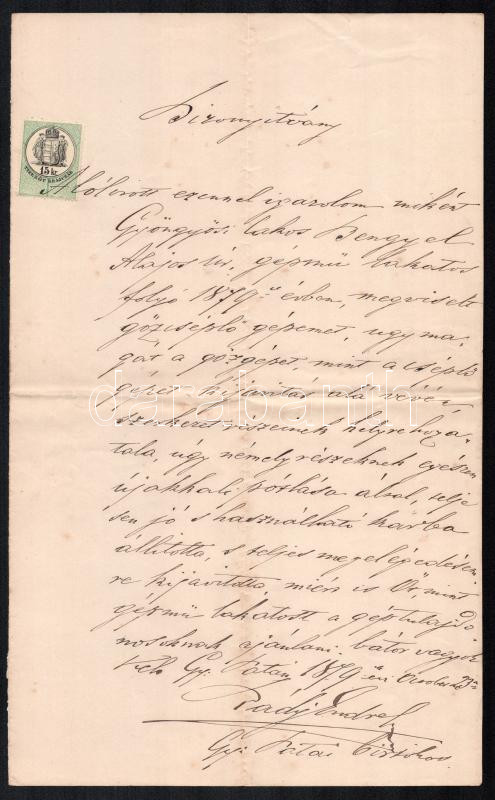 Bizonyitvány
15 kr
Alólirott ezennel igazolom miként
Gyöngyösi lakos Lengyel
Alajos úr, gépmű lakatos
folyó 1879ik évben, megviselt
gőzcséplő gépemet, ugy ma,
gát a gőzgépet, mint a cséplő
gépet kijavitás alá vévén,
szerkezet részeinek helyrehoza,
tala, úgy némely részeknek egészen
újakkali pótlása által, telje
sen jó s használható karba
állitotta, s teljes megelégedésem,
re kijavitotta, miért is Őt, mint
gépmű lakatost a géptulajdo
nosoknak ajánlani bátor vagyok
Kelt Gy. Patán 1879 évi October 23án
Rády Endre
Gy. Patai birtokos.
darabanth